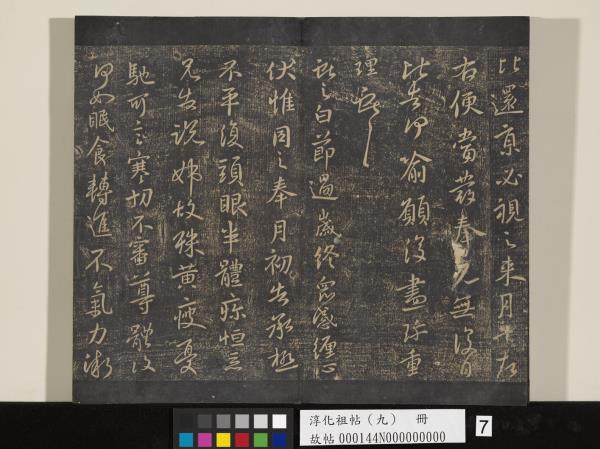 比還京必視之來月十左
右便當發奉見無復日
比告何喻願復盡珍重
理獻之
獻之白節過歲終眾感纏心
伏惟同之奉月初告承極
不平復頭眼半體疼恒惡
兄告說姊故殊黃瘦憂
馳可言寒切不審尊體復
何如眠食轉進不氣力漸
淳化祖帖(九) 冊
故帖 000144N000000000
7